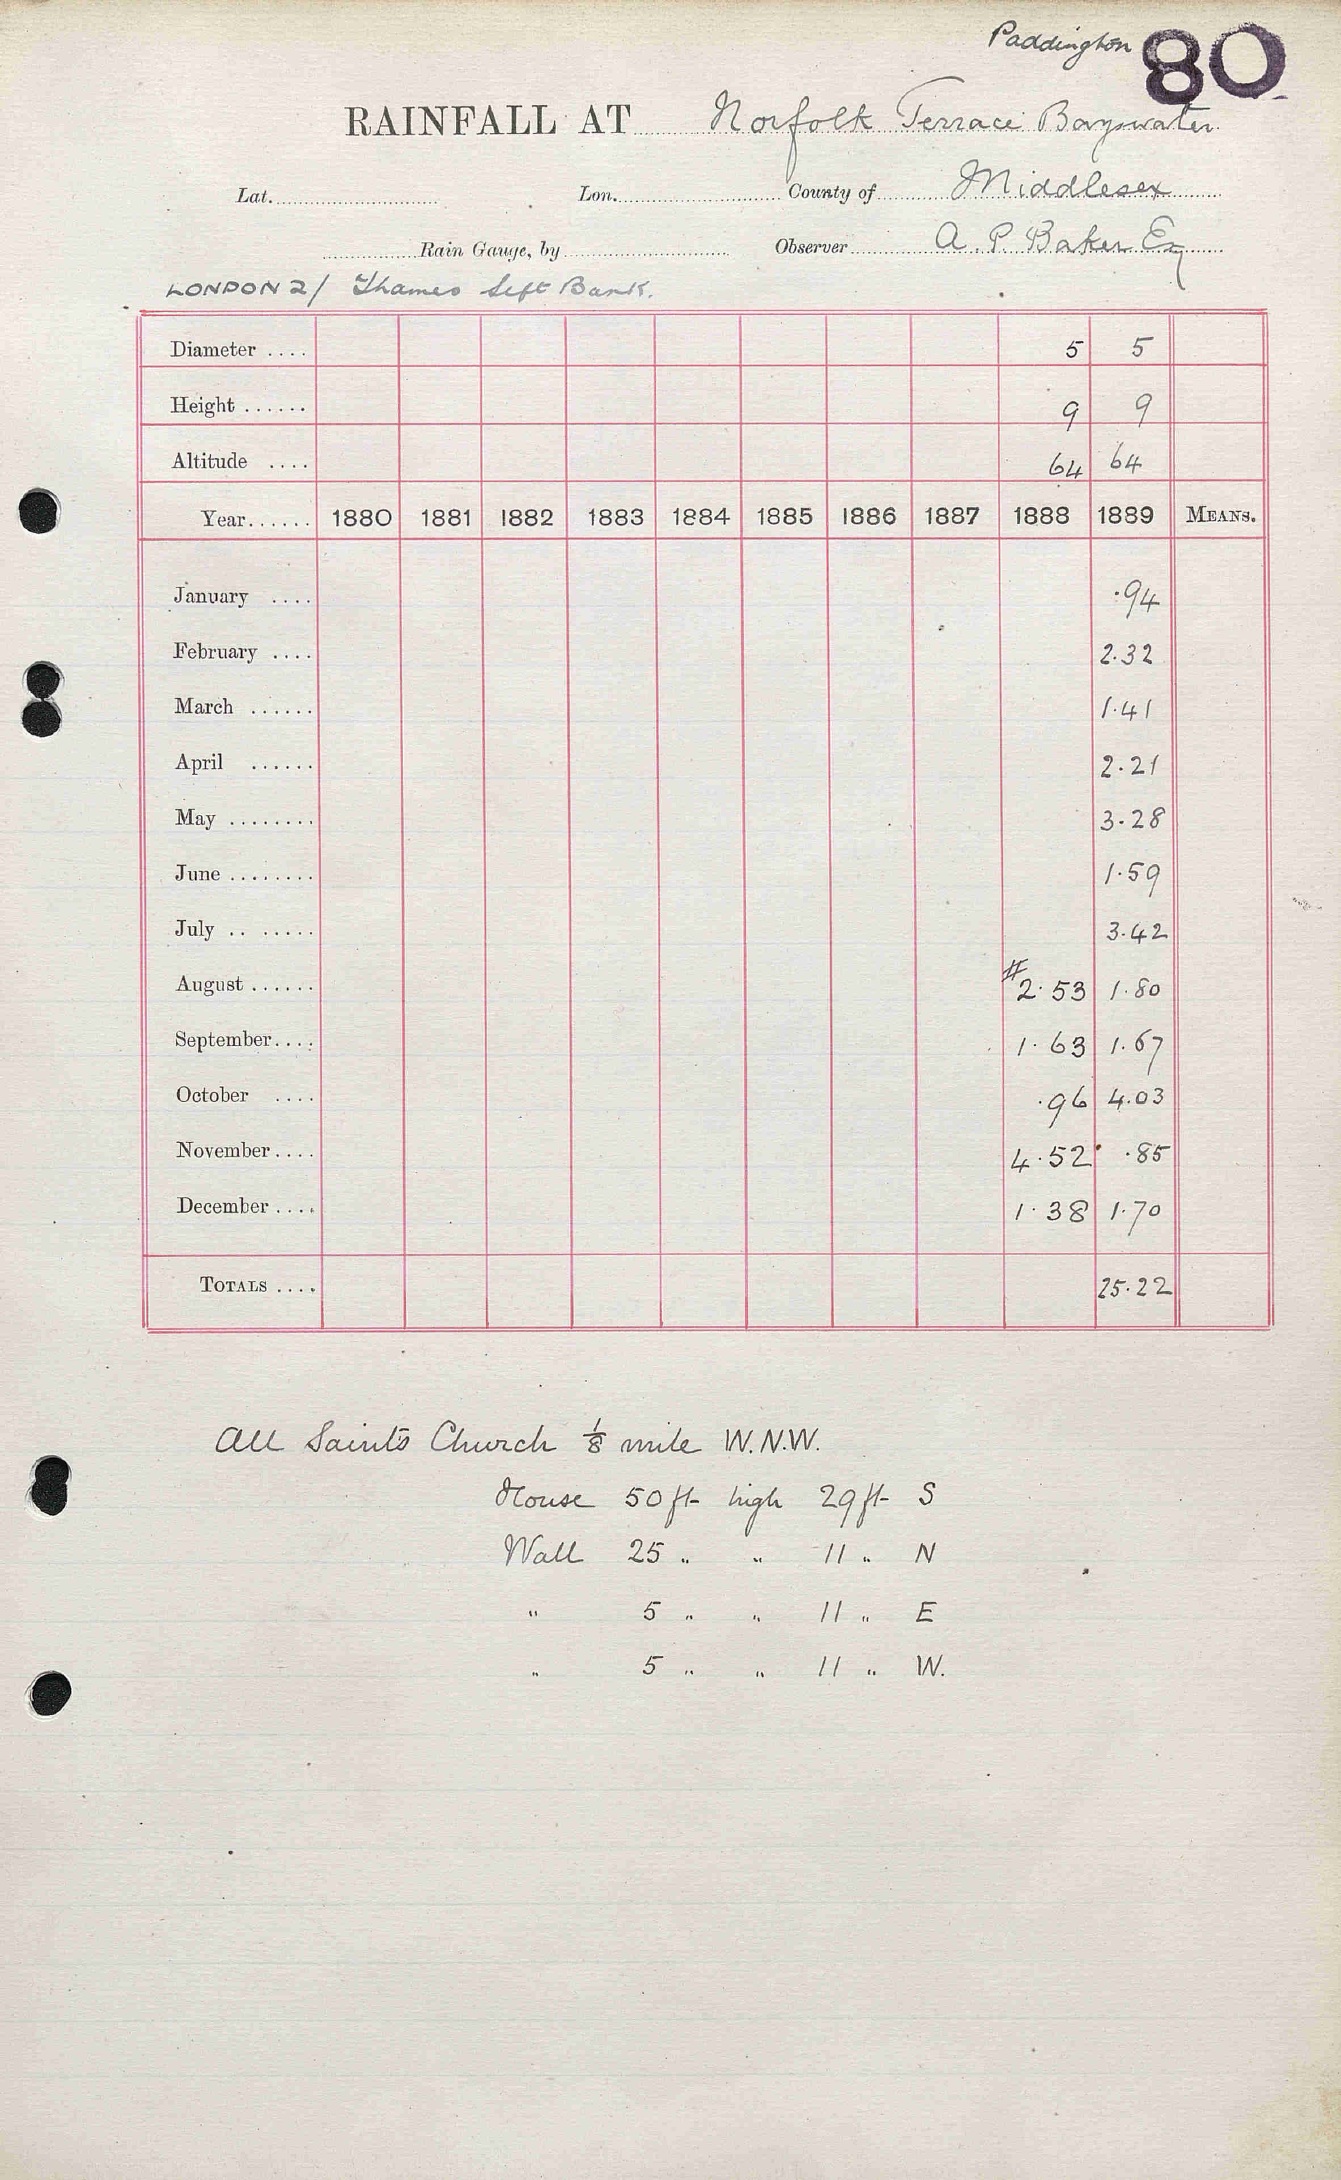 Paddington 80
RAINFALL AT Norfolk Terrace Bayswater
Lat. Lon. County of Middlesex
Rain Gauge, by Observer A. P. Baker Esq
LONDON 2/ Thames Left Bank.
Diameter .... 5 5
Height ...... 9 9
Altitude .... 64 64
Year...... 1880 1881 1882 1883 1884 1885 1886 1887 1888 1889 MEANS.
January .... .94
February .... 2.32
March ...... 1.41
April ...... 2.21
May ........ 3.28
June ........ 1.59
July .. ..... 3.42
August ...... #2.53 1.80
September.... 1.63 1.67
October .... .96 4.03
November.... 4.52 .85
December .... 1.38 1.70
TOTALS .... 25.22
All Saints Church 1/8 mile W.N.W.
House 50 ft high 29 ft S
Wall 25 " " 11 " N
" 5 " " 11 " E
" 5 " " 11 " W.